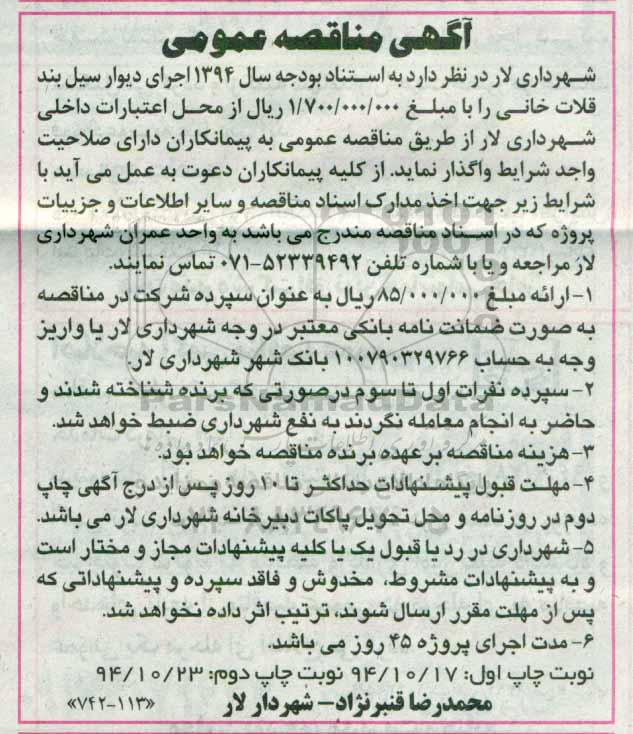 آگهی مناقصه عمومی
شهرداری لار در نظر دارد به استناد بودجه سال ۱۳۹۴ اجرای دیوار سیل بند
قلات خانی را با مبلغ ۱/۷۰۰/۰۰۰/۰۰۰ ریال از محل اعتبارات داخلی
شهرداری لار از طریق مناقصه عمومی به پیمانکاران دارای صلاحیت
واجد شرایط واگذار نماید. از کلیه پیمانکاران دعوت به عمل می آید با
شرایط زیر جهت اخذ مدارک اسناد مناقصه و سایر اطلاعات و جزییات
پروژه که در اسناد مناقصه مندرج می باشد به واحد عمران شهرداری
لار مراجعه و یا با شماره تلفن ۵۲۳۳۹۴۹۲-۰۷۱ تماس نمایند.
۱- ارائه مبلغ ۸۵/۰۰۰/۰۰۰ ریال به عنوان سپرده شرکت در مناقصه
به صورت ضمانت نامه بانکی معتبر در وجه شهرداری لار یا واریز
وجه به حساب ۱۰۰۷۹۰۳۲۹۷۶۶ بانک شهر شهرداری لار.
۲- سپرده نفرات اول تا سوم درصورتی که برنده شناخته شدند و
حاضر به انجام معامله نگردند به نفع شهرداری ضبط خواهد شد.
ParsNamadData
۳- هزینه مناقصه برعهده برنده مناقصه خواهد بود.
۴- مهلت قبول پیشنهادات حداکثر تا ۱۰ روز پس از درج آگهی چاپ
دوم در روزنامه و محل تحویل پاکات دبیرخانه شهرداری لار می باشد.
۵- شهرداری در رد یا قبول یک یا کلیه پیشنهادات مجاز و مختار است
و به پیشنهادات مشروط، مخدوش و فاقد سپرده و پیشنهاداتی که
پس از مهلت مقرر ارسال شوند، ترتیب اثر داده نخواهد شد.
۶- مدت اجرای پروژه ۴۵ روز می باشد.
نوبت چاپ اول: ۹۴/۱۰/۱۷ نوبت چاپ دوم: ۹۴/۱۰/۲۳
محمدرضا قنبرنژاد- شهردار لار «۱۱۳-۷۴۲»